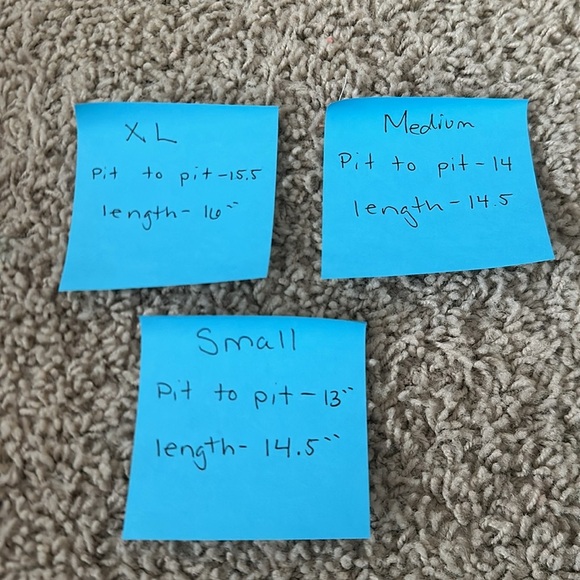 XL
Pit to pit-15.5
length-16"
Medium
Pit to pit-14
length-14.5
Small
Pit to pit-13"
length-14.5"